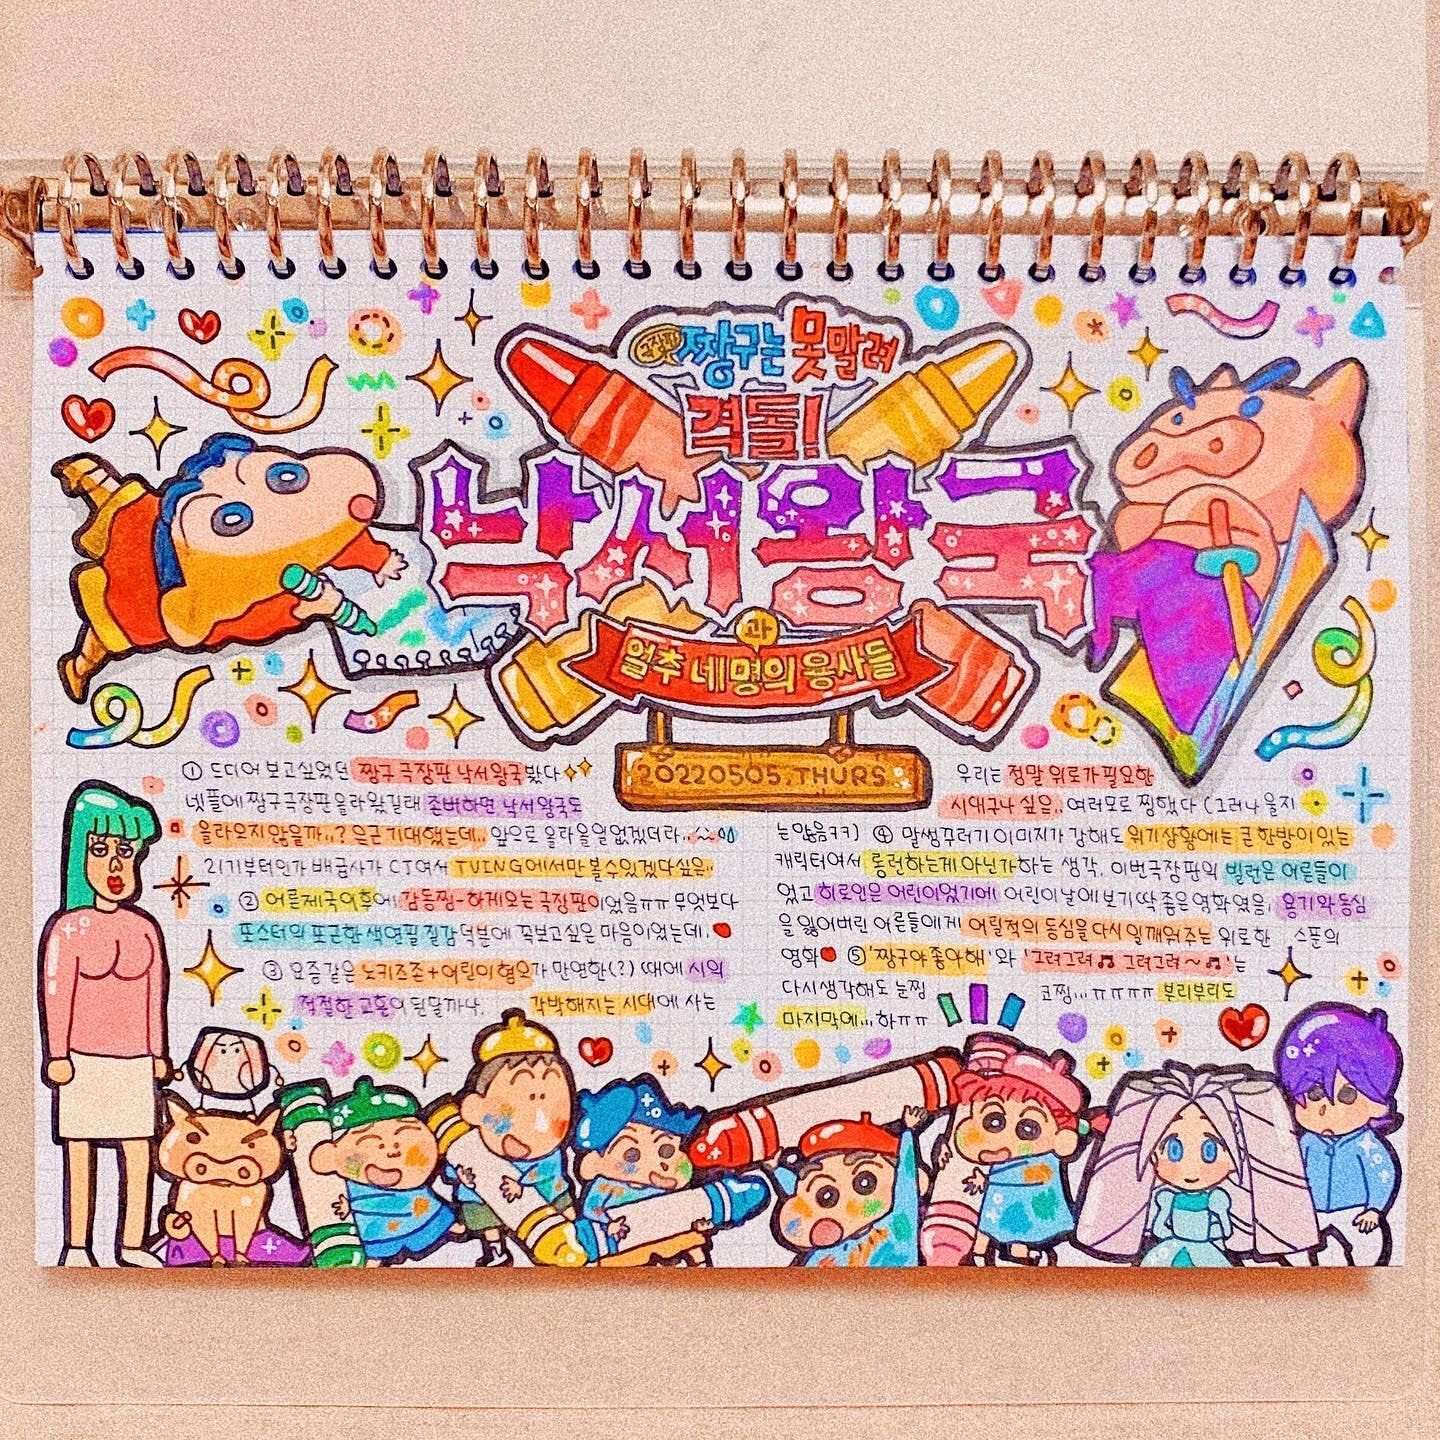 극장판 짱구는 못말려
격돌!
낙서왕국
과
얼추 네명의 용사들
20220505.THURS
① 드디어 보고싶었던 짱구 극장판 낙서왕국 봤다
넷플에 짱구극장판 올라왔길래 존버하면 낙서왕국도
올라오지않을까..? 은근 기대했는데.. 앞으로 올라올일 없겠더라..
2기부터인가 배급사가 CJ여서 TVING에서만 볼수있겠다싶음..
② 어른제국이후에 감동찜-하게오는 극장판이었음ㅠㅠ 무엇보다
포스터의 포근한 색연필 질감 덕분에 꼭보고싶은 마음이었는데.
③ 요즘같은 노키즈존+어린이 혐오가 만연한(?) 때에 시의
적절한 교훈이 된달까나. 각박해지는 시대에 사는
우리는 정말 위로가 필요한
시대구나 싶음.. 여러모로 찡했다 (그러나 울지
는않음ㅋㅋ) ④ 말썽꾸러기 이미지가 강해도 위기상황에는 큰 한방이 있는
캐릭터여서 롱런하는게 아닌가하는 생각. 이번극장판의 빌런은 어른들이
었고 히로인은 어린이었기에 어린이날에 보기 딱 좋은 영화였음. 용기와 동심
을 잃어버린 어른들에게 어릴적의 동심을 다시 일깨워주는 위로한 스푼의
영화 ⑤ '짱구야 좋아해'와 '그려그려♬ 그려그려~♬'는
다시생각해도 눈찡 코찡...ㅠㅠㅠㅠ 부리부리도
마지막에... 하ㅠㅠ